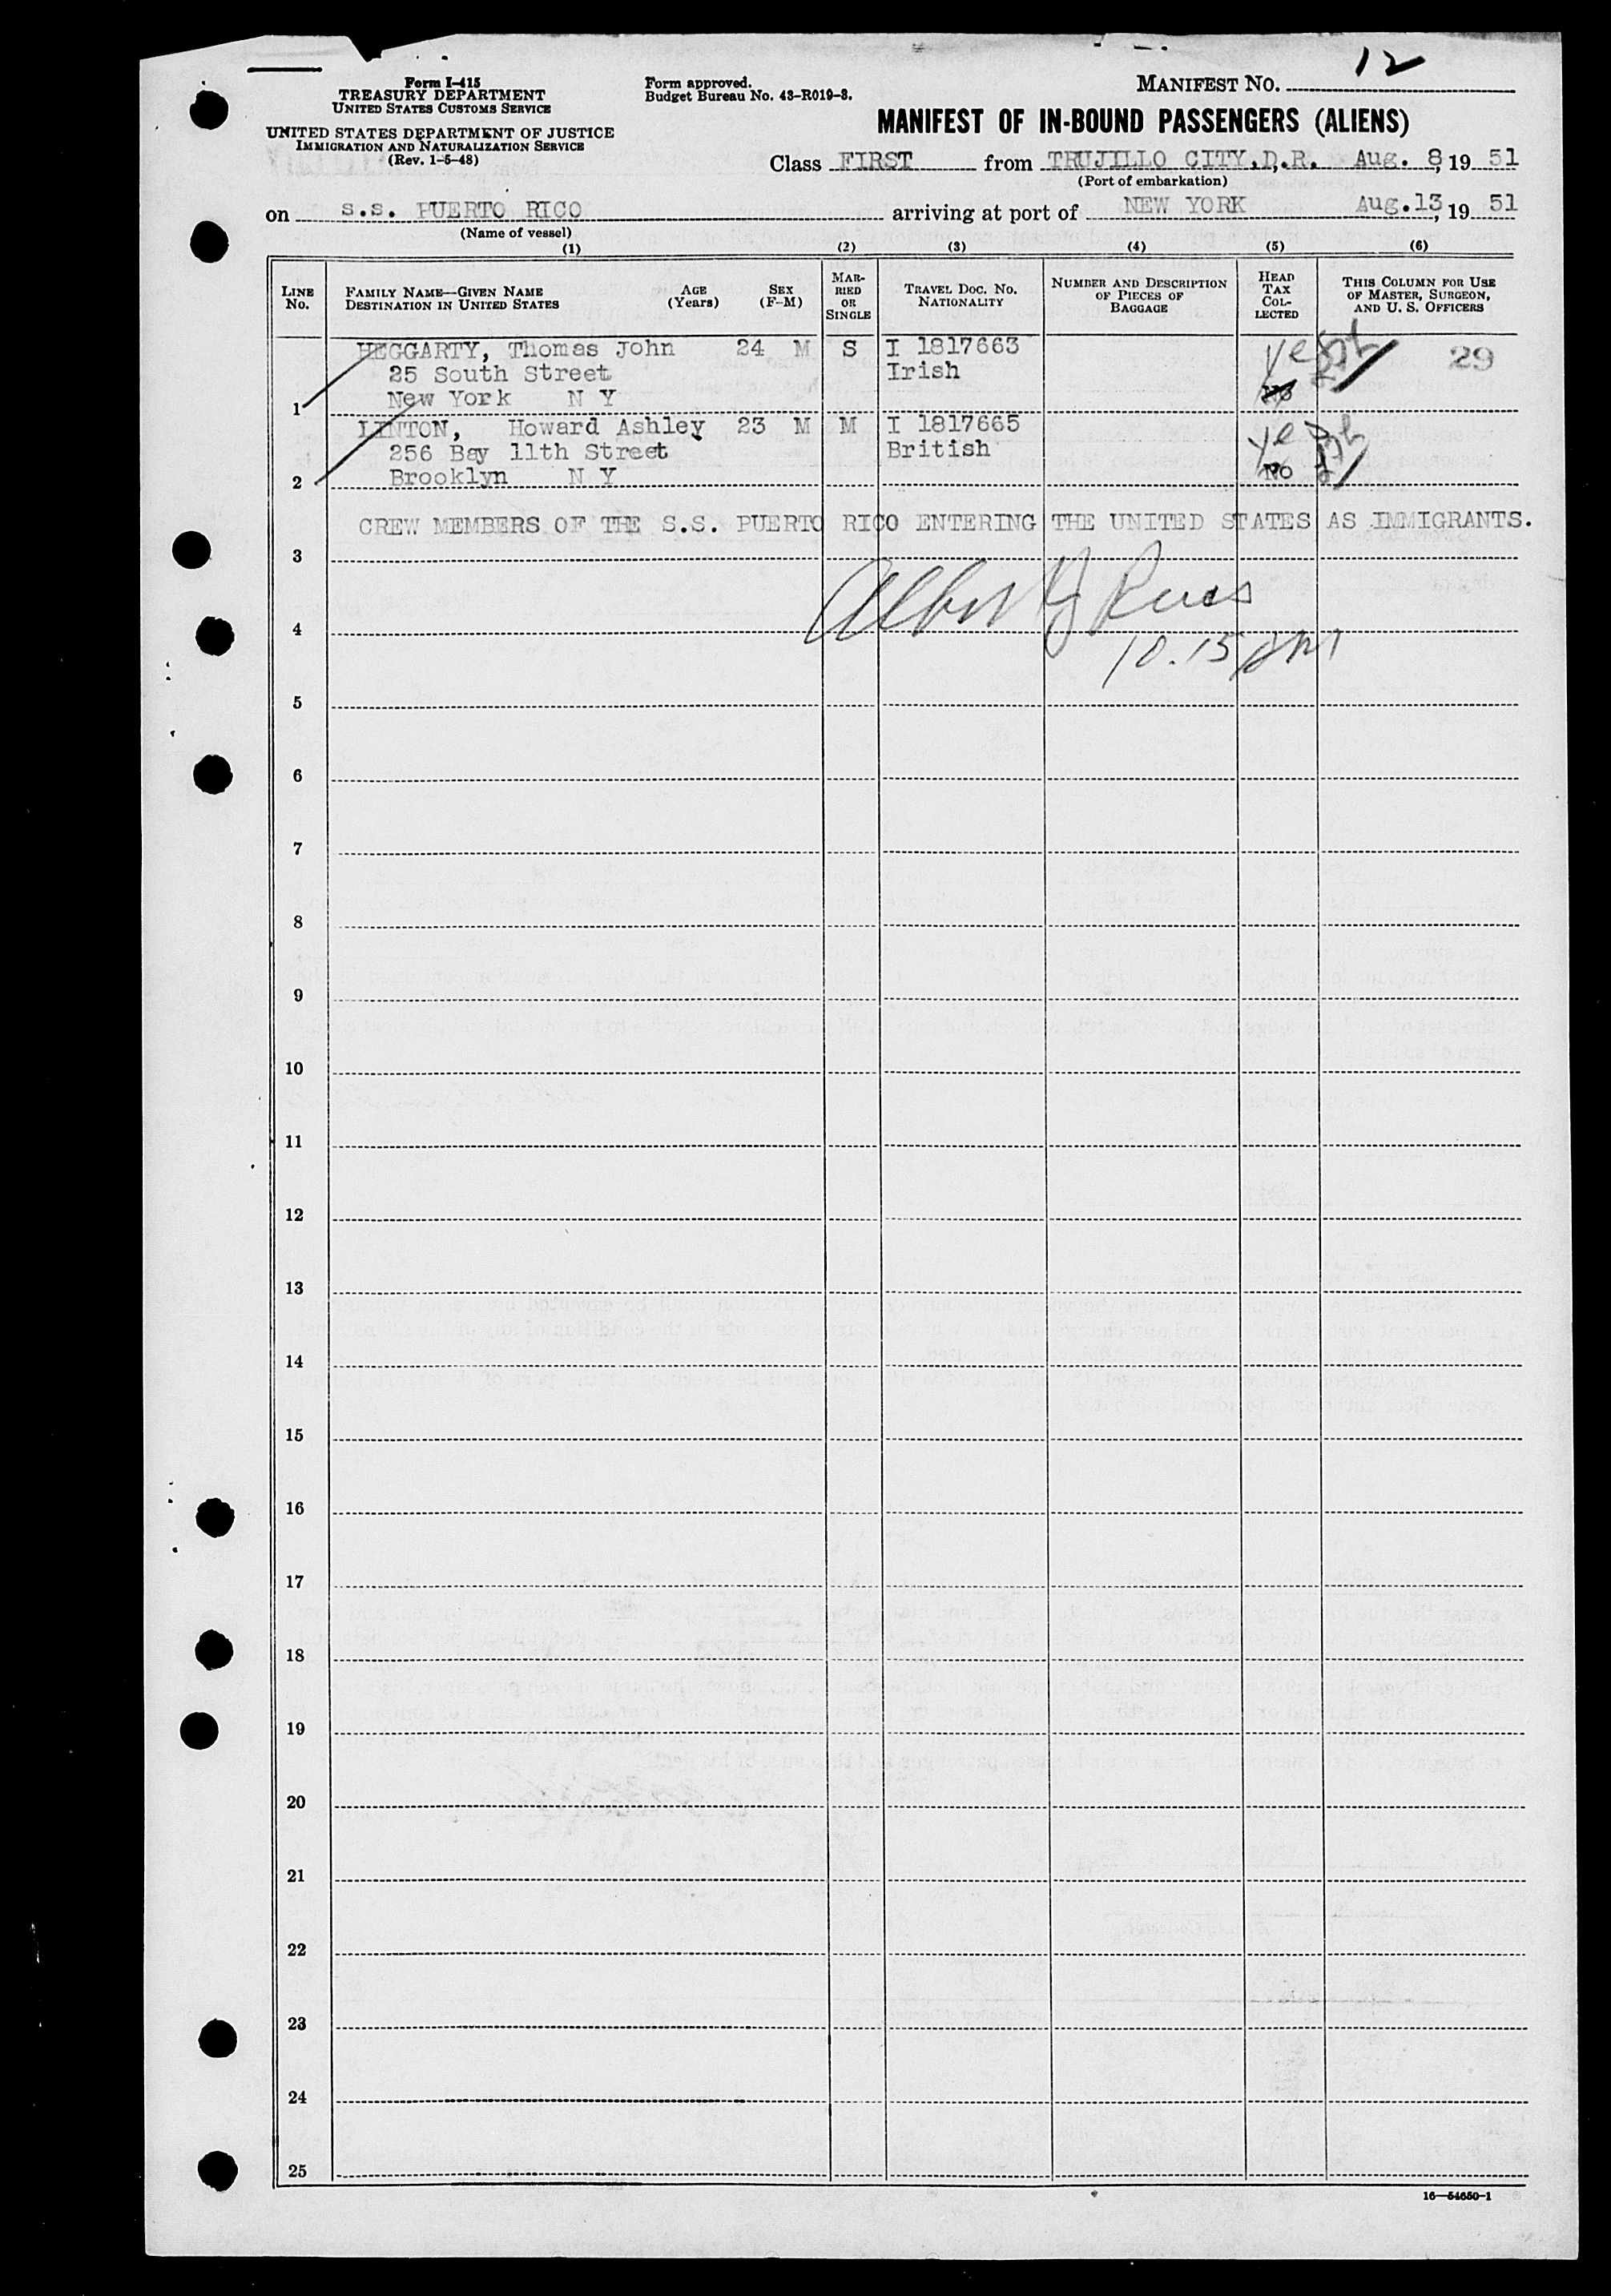 12
Form I-415
TREASURY DEPARTMENT
UNITED STATES CUSTOMS SERVICE
UNITED STATES DEPARTMENT OF JUSTICE
IMMIGRATION AND NATURALIZATION SERVICE
(Rev. 1-5-48)
Form approved.
Budget Bureau No. 43-R019-3.
MANIFEST NO.
MANIFEST OF IN-BOUND PASSENGERS (ALIENS)
Class FIRST from TRUJILLO CITY,D.R. Aug. 8, 19 51
(Port of embarkation)
on s.s. PUERTO RICO arriving at port of NEW YORK Aug.13, 19 51
(Name of vessel)
(1) (2) (3) (4) (5) (6)
LINE NO.
FAMILY NAME—GIVEN NAME
DESTINATION IN UNITED STATES
AGE (Years)
SEX (F-M)
MARRIED OR SINGLE
TRAVEL DOC. NO. NATIONALITY
NUMBER AND DESCRIPTION OF PIECES OF BAGGAGE
HEAD TAX COLLECTED
THIS COLUMN FOR USE OF MASTER, SURGEON, AND U. S. OFFICERS
HEGGARTY, Thomas John 24 M S I 1817663 yes 29
25 South Street Irish
1 New York N Y No
LINTON, Howard Ashley 23 M M I 1817665 yes
256 Bay 11th Street British
2 Brooklyn N Y No
CREW MEMBERS OF THE S.S. PUERTO RICO ENTERING THE UNITED STATES AS IMMIGRANTS.
3
4
10.15
5
6
7
8
9
10
11
12
13
14
15
16
17
18
19
20
21
22
23
24
25
16—54650-1